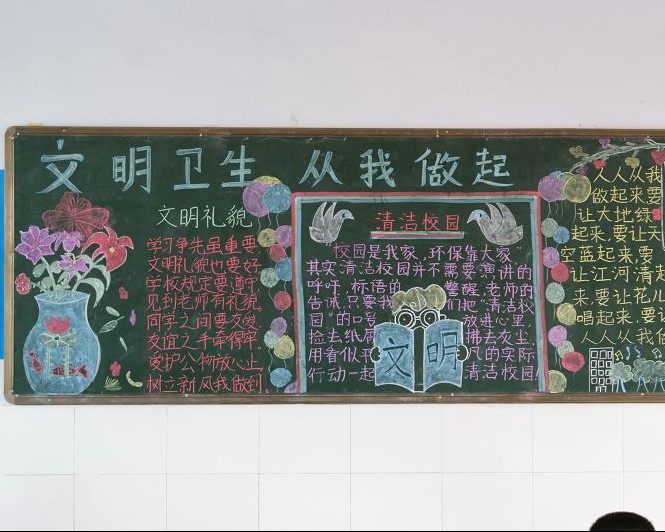 文明卫生 从我做起
文明礼貌
学习争先虽重要
文明礼貌也要好
学校规定要遵守
见到老师有礼貌
同学之间要友爱
友谊之手牵得牢
爱护公物放心上
树立新风我做到
清洁校园
"校园是我家，环保靠大家"
其实清洁校园并不需要演讲的
呼吁，标语的 警醒，老师的
告诫，只要我 们把"清洁校
园"的口号 放进心里，
捡去纸屑 拂去灰尘
用看似平 凡的实际
行动一起 清洁校园！
文明
人人从我
做起来，要
让大地绿
起来，要让天
空蓝起来，要
让江河清来
来，要让花儿
唱起来，要让
人人从我做